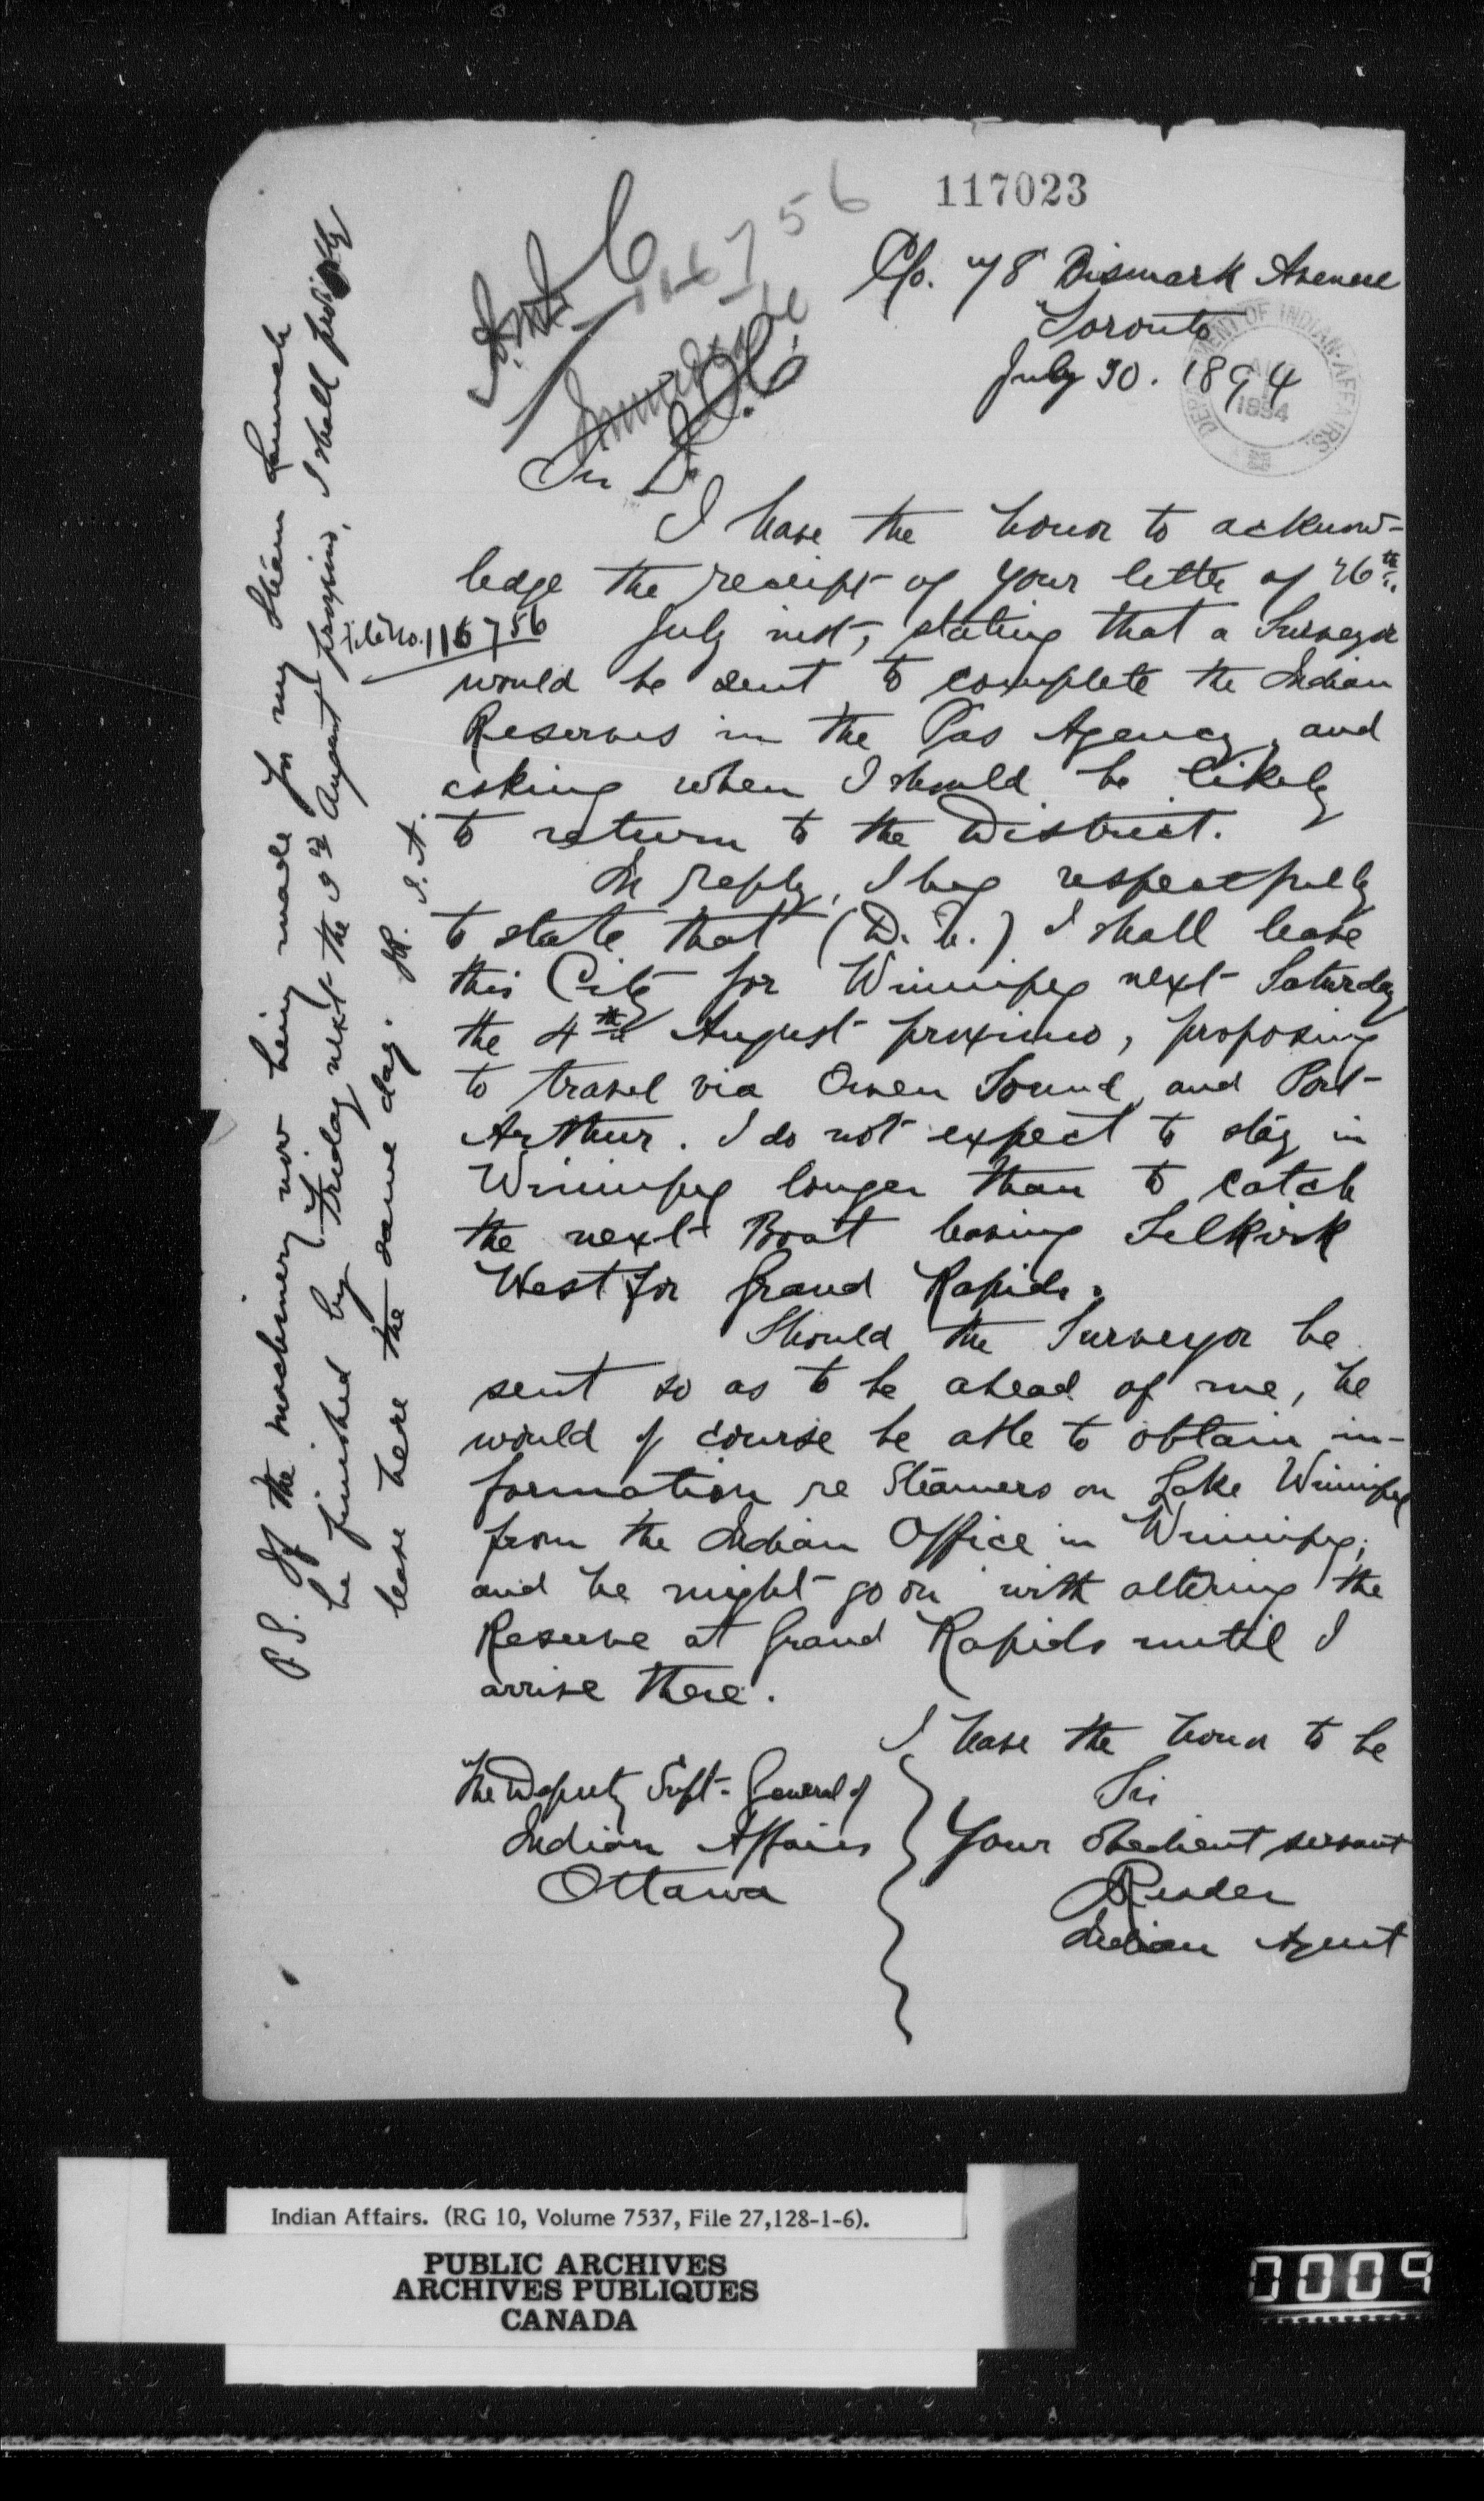 117023
116756
C/o. 78 Bismark Avenue
Toronto
July 30. 1894
DEPARTMENT OF INDIAN AFFAIRS
1894
Immediate
Sir
I have the honor to acknow-
ledge the receipt of your letter of 26th
File No. 116756
July inst, stating that a Surveyor
would be sent to complete the Indian
Reserves in the Pas Agency, and
asking when I should be likely
to return to the District.
In reply, I beg respectfully
to state that (D. V.) I shall leave
this City for Winnipeg next Saturday
the 4th August proximo, proposing
to travel via Owen Sound and Port-
Arthur. I do not expect to stay in
Winnipeg longer than to catch
the next Boat leaving Selkirk
West for Grand Rapids.
Should the Surveyor be
sent so as to be ahead of me, he
would of course be able to obtain in-
formation re Steamers on Lake Winnipeg
from the Indian Office in Winnipeg;
and he might go on with altering the
Reserve at Grand Rapids until I
arrive there.
I have the honor to be
Sir
Your obedient servant
Reader
Indian Agent
The Deputy Supt-General of
Indian Affairs
Ottawa
P.S. If the machinery now being made for my Steam Launch
be finished by Friday next the 3rd August proximo, I shall probably
leave here the same day.
Indian Affairs. (RG 10, Volume 7537, File 27,128-1-6).
PUBLIC ARCHIVES
ARCHIVES PUBLIQUES
CANADA
0009